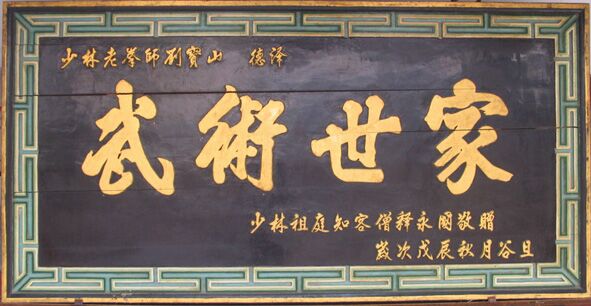 少林老拳師劉寳山 德泽
武術世家
少林祖庭知客僧釋永國敬贈
歲次戊辰秋月谷旦